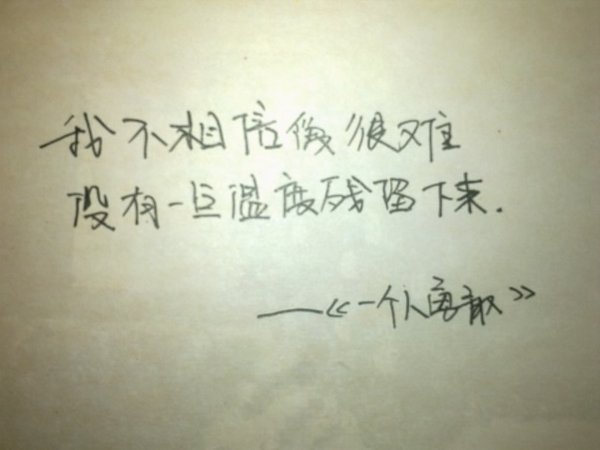 我不相信做很难
没有一旦温度残留下来.
——《一个人勇敢》